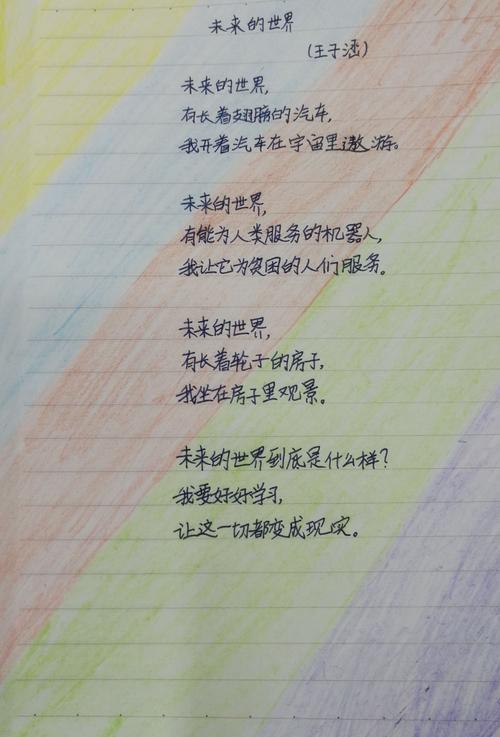 未来的世界
(王子涵)
未来的世界,
有长着翅膀的汽车,
我开着汽车在宇宙里遨游。
未来的世界,
有能为人类服务的机器人,
我让它为贫困的人们服务。
未来的世界,
有长着轮子的房子,
我坐在房子里观景。
未来的世界到底是什么样?
我要好好学习,
让这一切都变成现实。